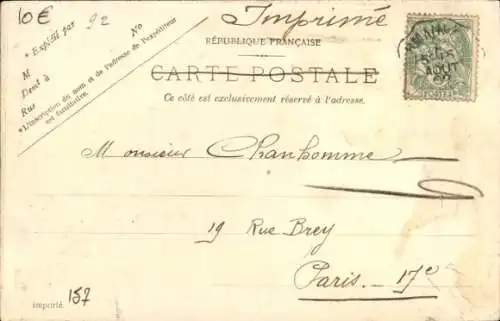 10€
92
Imprimé
* Expédié par
No
M
Demt à
Rue
* L'inscription du nom et de l'adresse de l'expéditeur
est facultative.
RÉPUBLIQUE FRANÇAISE
CARTE POSTALE
Ce côté est exclusivement réservé à l'adresse.
AOUT
Monsieur Chanhomme
19 Rue Brey
Paris. 17e
importé.
157